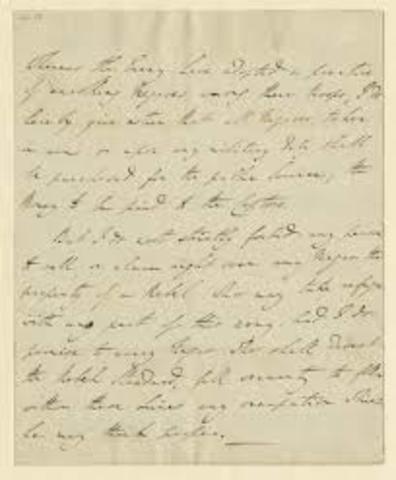 Whereas the Enemy have adopted a practice
of enrolling Negroes among their troops, I do
hereby give notice that all Negroes taken
in arms or upon any military Duty shall
be purchased for the public Service; the
Money to be paid to the Captors.
But I do most strictly forbid any person
to sell or claim right over any Negroe the
property of a Rebel who may take refuge
with any part of this army, And I do
promise to every Negroe who shall desert
the Rebel Standard, full security to follow
within these Lines any occupation
he may think proper.